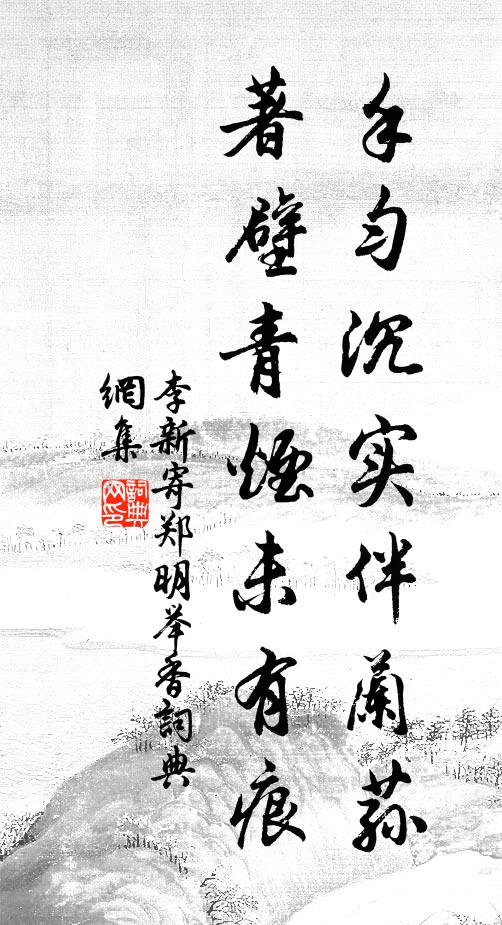 手匀沉实伴蘭荪
著壁青煙未有痕
李新寄郑明举香詞典
網集
詞典
网印